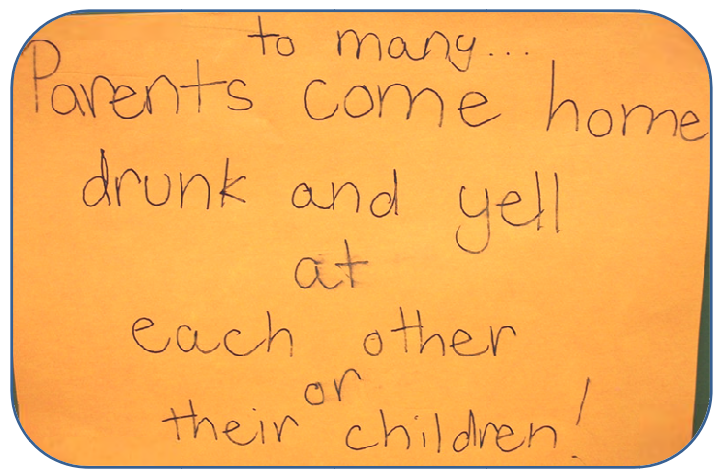 to many...
Parents come home
drunk and yell
at
each other
or
their children!